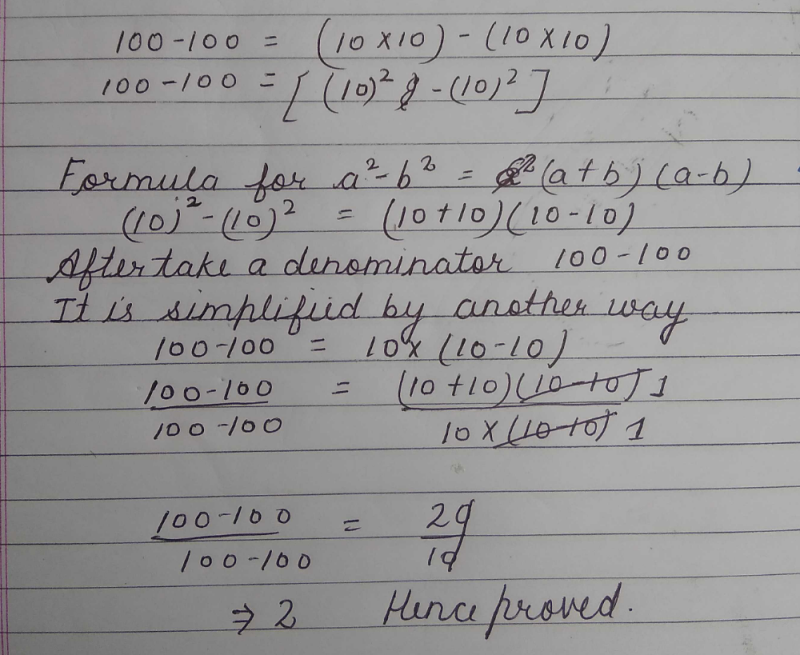 100-100 = (10×10) - (10×10)
100-100 = [(10)² - (10)²]
Formula for a²-b² = (a+b)(a-b)
(10)²-(10)² = (10+10)(10-10)
After take a denominator 100-100
It is simplified by another way
100-100 = 10×(10-10)
100-100 = (10+10)(10-10) 1
100-100 10×(10-10) 1
100-100 = 20
100-100 10
⇒ 2 Hence proved.